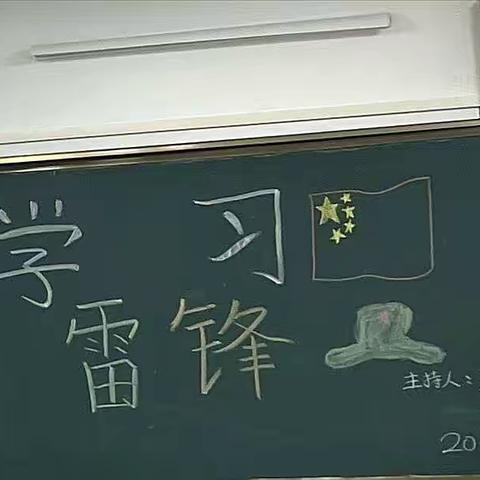 学习
雷锋
主持人：
20